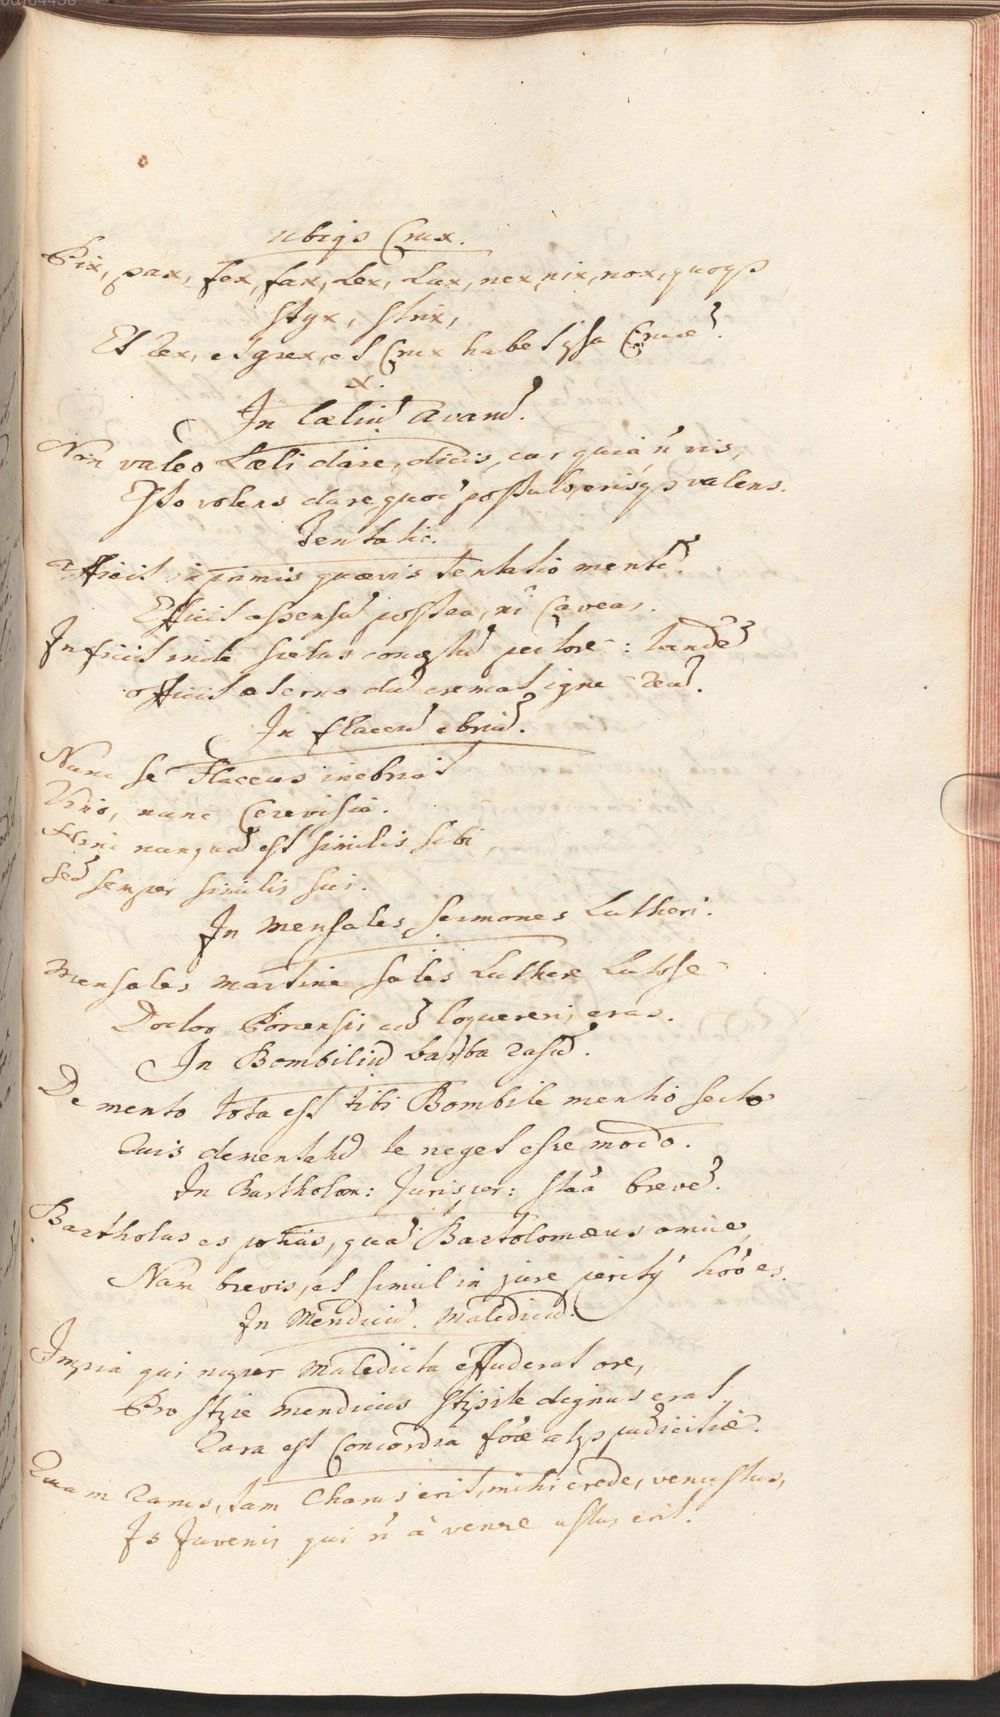 ubiqs Crux.
Pix, pax, fex, fax, Lex, Lux, nex, nix, nox, quoqs
styx, strix,
Et Rex, et grex, et Crux habet ipsa Cruce͂.
x.
In Læliu͂ avaru͂.
Non valeo Læli dare, dicis, cur quia n͂ vis,
Esto volens dare, quod postulo, erisqs valens.
Tentatio.
Afficit inprimis quævis tentatio mente͂.
Efficit assensu͂ postea, ni Caveas.
Inficit inde scelus conceptu͂ pectore: tande͂
officit æterno du͂ cremat igne reu͂.
In flaccu͂ ebriu͂.
Nunc se Flaccus inebriat
Vino, nunc Cerevisia.
Hinc nunqua͂ est similis sibi,
Sed semper similis sui.
In Mensales sermones Lutheri.
Mensales Martine sales Luthere Lutosse
Doctor Porcensis cu͂ loquereris, eras.
In Bombiliu͂ barba rasu͂.
De mento tota est tibi Bombile mentio secto
Quis dementatu͂ te neget esse modo.
In Bartholom: Jurisper: sta͂a breve͂.
Bartholus es potius, qua͂ Bartolomæus amice,
Nam brevis, et simul in jure peritq' ho͂o es.
In Mendicu͂ Maledicu͂.
Impia qui nuper Maledicta effuderat ore,
Pro stipe mendicus stipite dignus erat.
Rara est Concordia fo͂æ atqs pudicitiæ.
Quam Rarus, tam Charus erit, mihi crede, venustus,
Is Juvenis qui n͂ à venere ustus erit.